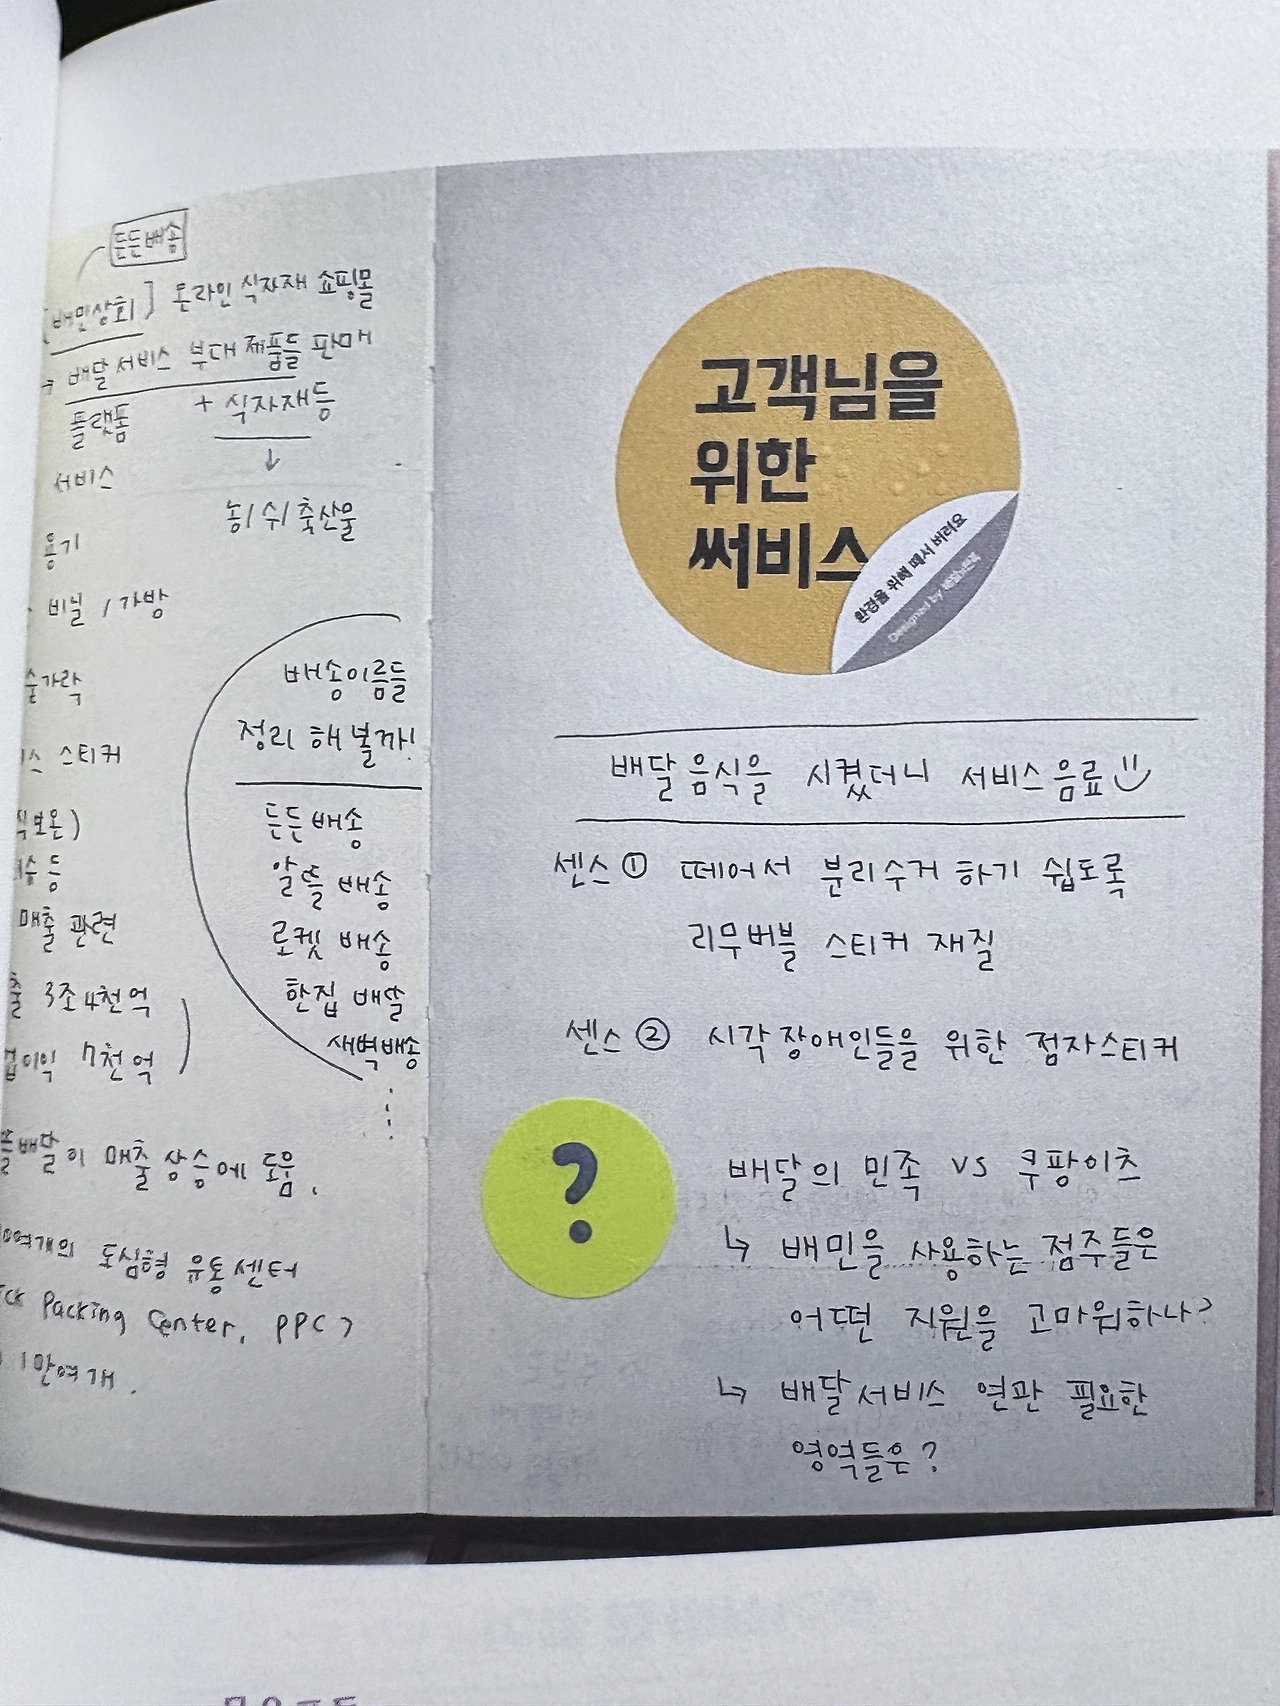 든든배송
[배민상회] 온라인 식자재 쇼핑몰
→ 배달서비스 부대 제품들 판매
플랫폼 + 식자재등
↓
서비스
농/수/축산물
용기
비닐 / 가방
숟가락
스티커
보온)
등
매출 관련
3조4천억
7천억
배달이 매출 상승에 도움.
여개의 도심형 유통센터
Packing Center, PPC>
1만여개.
배송이름들
정리 해 볼까!
든든배송
알뜰 배송
로켓 배송
한집 배달
새벽배송
⋮
고객님을
위한
써비스
환경을 위해 떼서 버려요
Designed by 배달의민족
배달 음식을 시켰더니 서비스 음료
센스 ① 떼어서 분리수거 하기 쉽도록
리무버블 스티커 재질
센스 ② 시각장애인들을 위한 점자스티커
?
배달의 민족 vs 쿠팡이츠
↳ 배민을 사용하는 점주들은
어떤 지원을 고마워하나?
↳ 배달서비스 연관 필요한
영역들은?